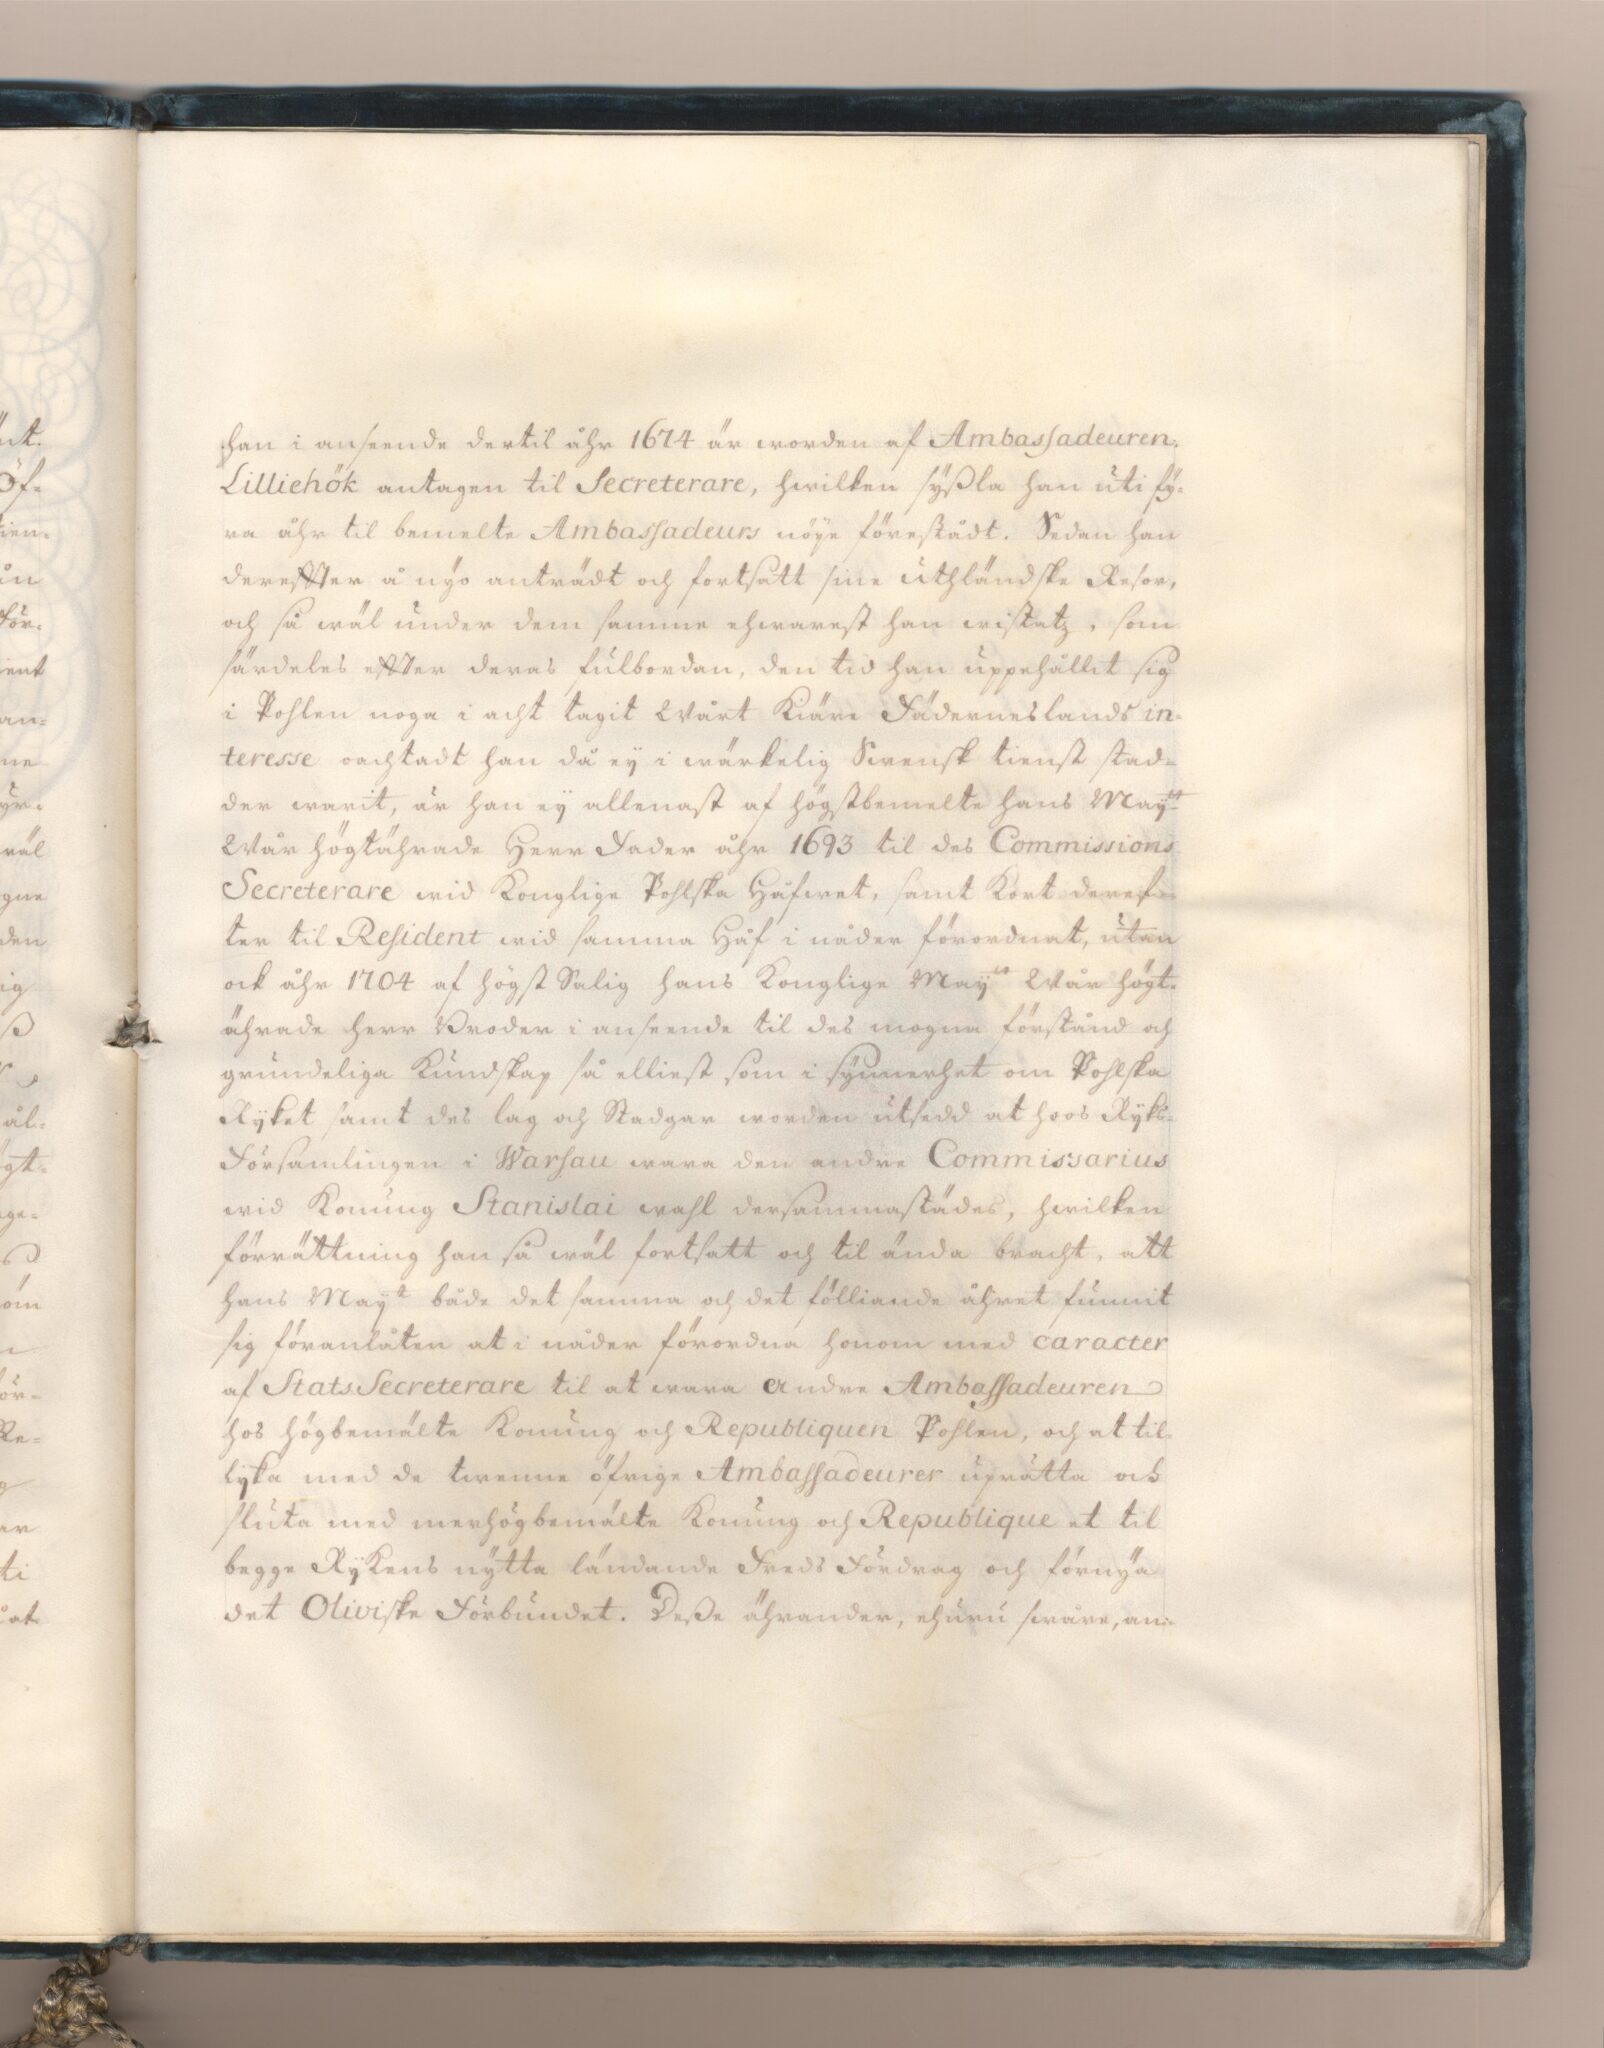 han i anseende dertil åhr 1674 är worden af Ambassadeuren
Lilliehök antagen til Secreterare, hwilken syßla han uti fy-
ra åhr til bemelte Ambassadeurs nöye förestådt. Sedan han
derefter å nyo anträdt och fortsatt sine uthländske Resor,
och så wäl under dem samme ehwarest han wistatz, som
särdeles efter deras fulbordan, den tid han uppehållit sig
i Pohlen noga i acht tagit Wårt Kiäre Fäderneslands in-
teresse oachtadt han då ey i wärkelig Swensk tienst stad-
der warit, är han ey allenast af högstbemelte hans Mayt
Wår högtährade Herr Fader åhr 1693 til des Commissions
Secreterare wid Konglige Pohlska Håfwet, samt Kort deref-
ter til Resident wid samma Håf i nåder förordnat, utan
ock åhr 1704 af högst Salig hans Konglige Mayts Wår högt-
ährade herr Broder i anseende til des mogna förstånd och
grundeliga Kundskap så elliest som i synnerhet om Pohlska
Ryket samt des lag och Stadgar worden utsedd at hoos Ryks-
Församlingen i Warsau wara den andre Commissarius
wid Konung Stanislai wahl dersammastädes, hwilken
förrättning han så wäl fortsatt och til ända bracht, att
hans Mayt både det samma och det följiande åhret funnit
sig föranlåten at i nåder förordna honom med caracter
af StatsSecreterare til at wara andre Ambassadeuren
hos högbemälte Konung och Republiquen Pohlen, och at til-
lyka med de twenne öfrige Ambassadeurer uprätta och
sluta med merhögbemälte Konung och Republique et til
begge Rykens nytta ländande Freds Fördrag och förnya
det Oliviske Förbundet. Deße ährander, ehuru swåre, an-